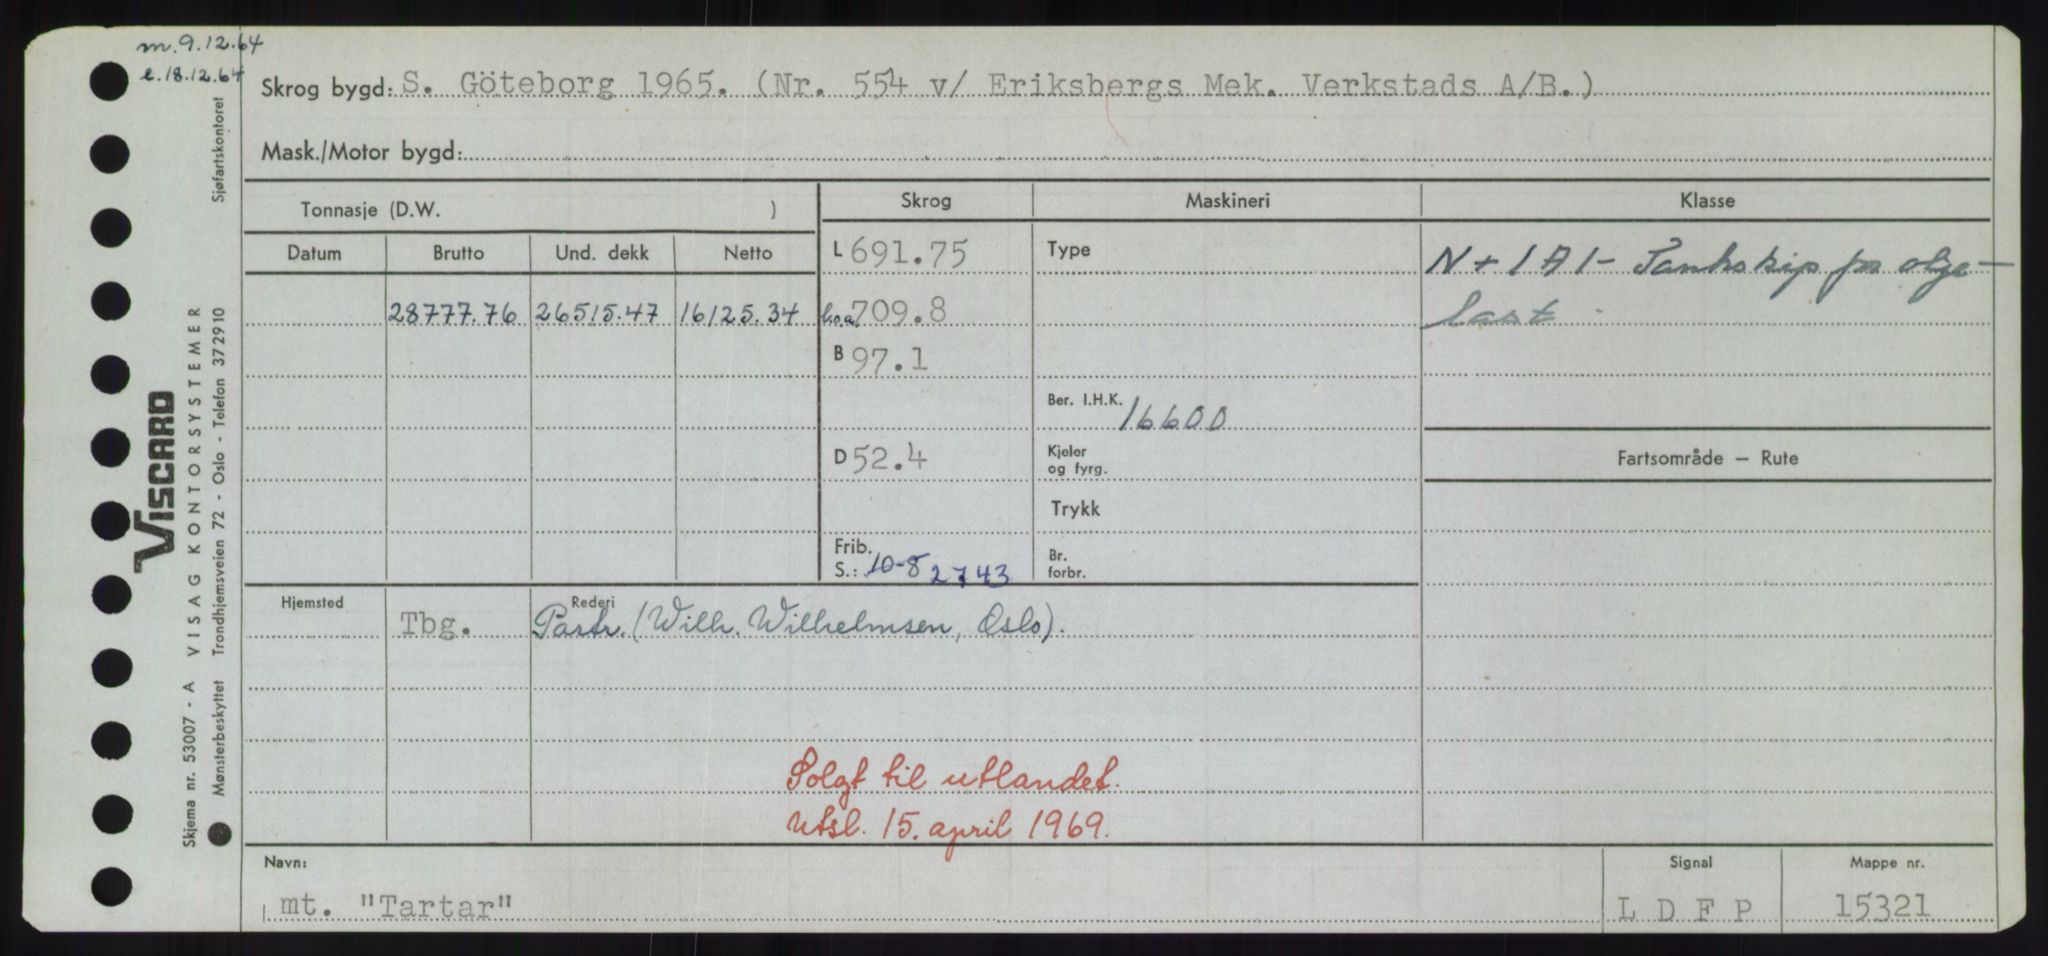 m. 9.12.64
e. 18.12.64
Skrog bygd: S. Göteborg 1965. (Nr. 554 v/ Eriksbergs Mek. Verkstads A/B.)
Mask./Motor bygd:
Tonnasje (D.W. )
Skrog
Maskineri
Klasse
Datum
Brutto
Und. dekk
Netto
28777.76
26515.47
16125.34
L 691.75
l.o.a. 709.8
B 97.1
D 52.4
Frib.
S.: 10-8 2743
Type
Ber. I.H.K. 16600
Kjeler
og fyrg.
Trykk
Br.
forbr.
N + 1A1 - Tankskip for olje-
last
Fartsområde — Rute
Hjemsted
Rederi
Tbg.
Partr. (Wilh. Wilhelmsen, Oslo).
Solgt til utlandet.
Utsl. 15. april 1969.
Navn:
mt. "Tartar"
Signal
L D F P
Mappe nr.
15321
VISCARD
Skjema nr. 53007 - A VISAG KONTORSYSTEMER
Mønsterbeskyttet Trondhjemsveien 72 - Oslo - Telefon 372910 Sjøfartskontoret